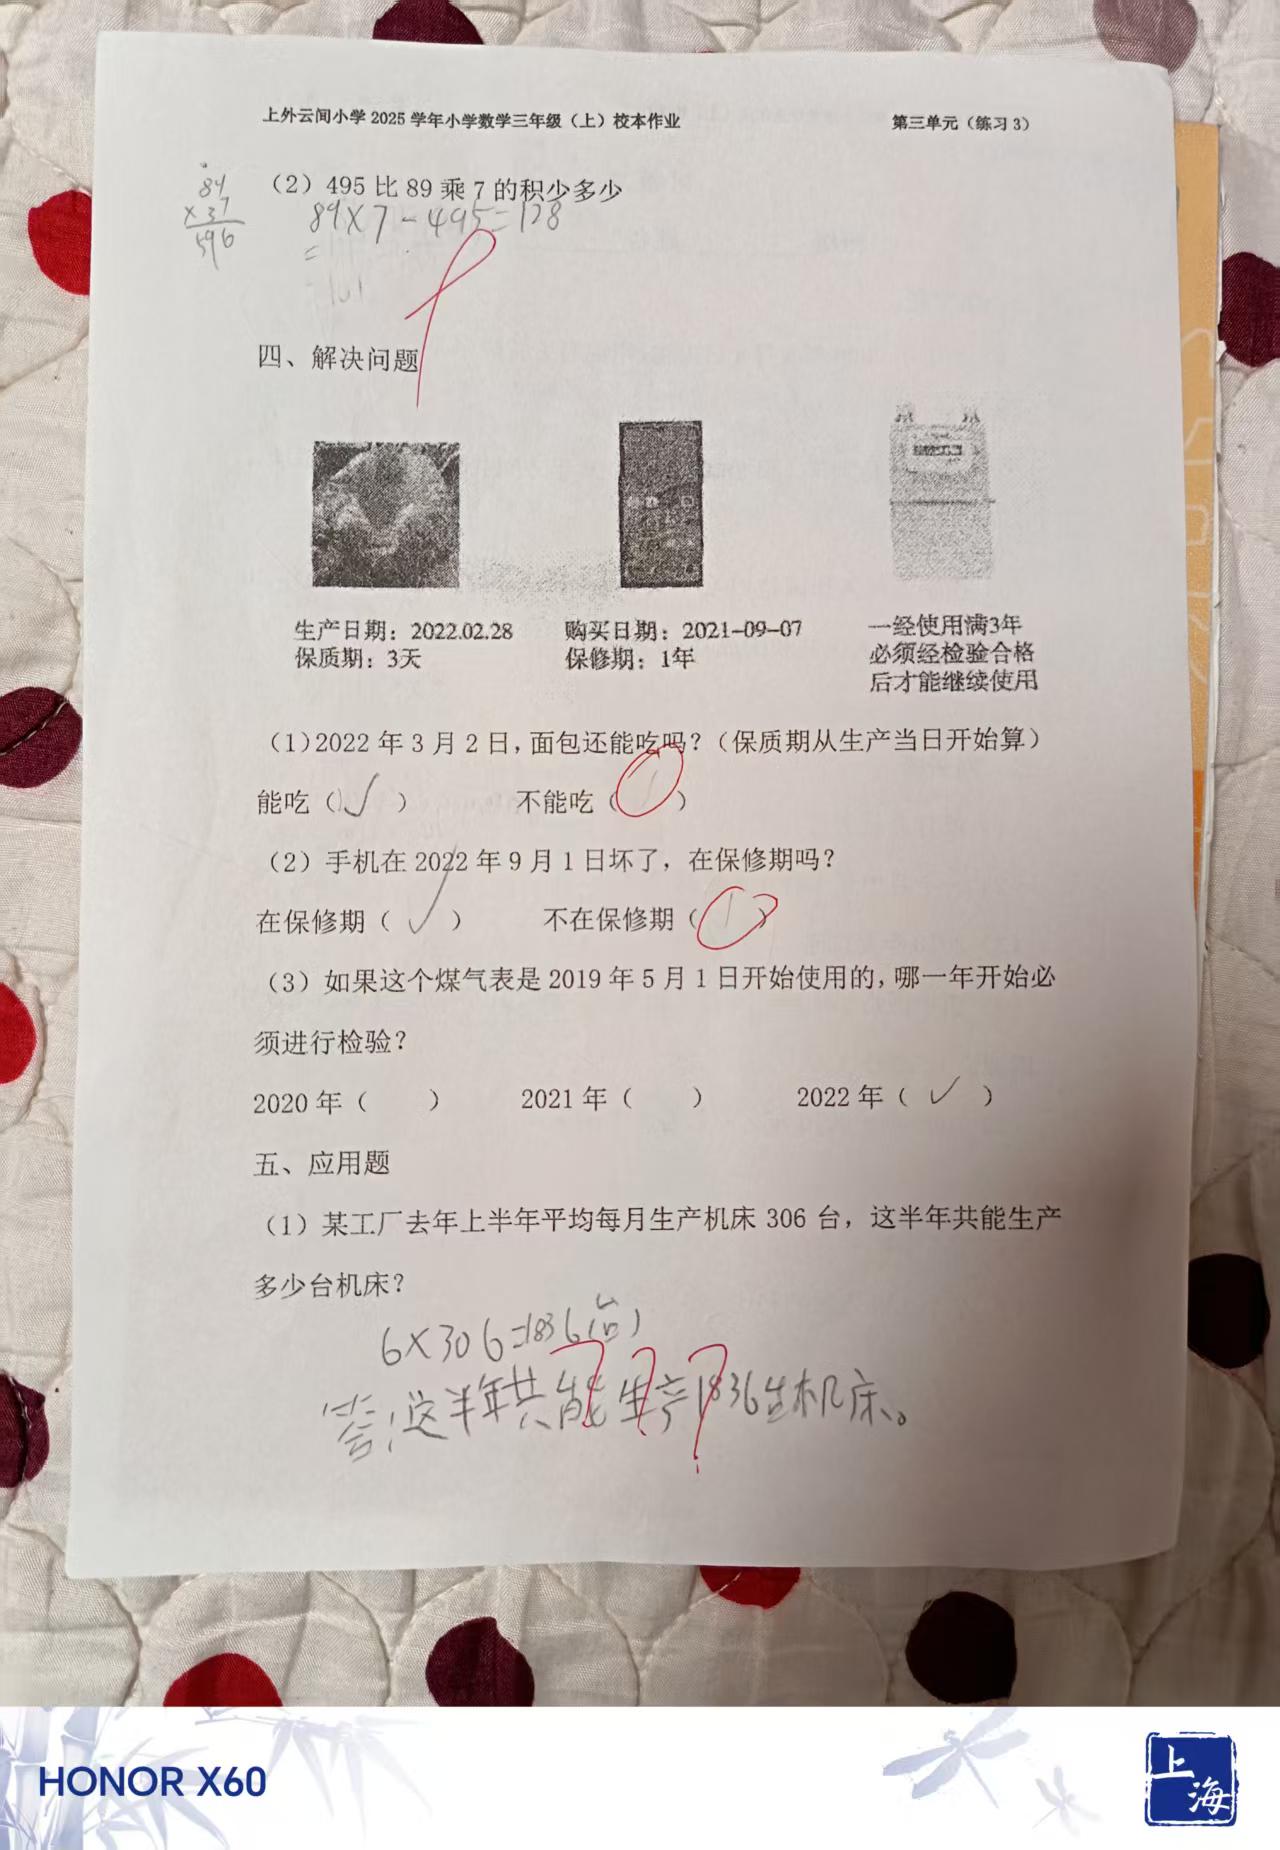 上外云间小学2025学年小学数学三年级（上）校本作业 第三单元（练习3）
（2）495比89乘7的积少多少
89
×37
596
89×7-495=128
=
四、解决问题
生产日期：2022.02.28
保质期：3天
购买日期：2021-09-07
保修期：1年
一经使用满3年
必须经检验合格
后才能继续使用
（1）2022年3月2日，面包还能吃吗？（保质期从生产当日开始算）
能吃（✓） 不能吃（ ）
（2）手机在2022年9月1日坏了，在保修期吗？
在保修期（✓） 不在保修期（ ）
（3）如果这个煤气表是2019年5月1日开始使用的，哪一年开始必
须进行检验？
2020年（ ） 2021年（ ） 2022年（✓）
五、应用题
（1）某工厂去年上半年平均每月生产机床306台，这半年共能生产
多少台机床？
6×306=1836（台）
答：这半年共能生产1836台机床。
HONOR X60
上海